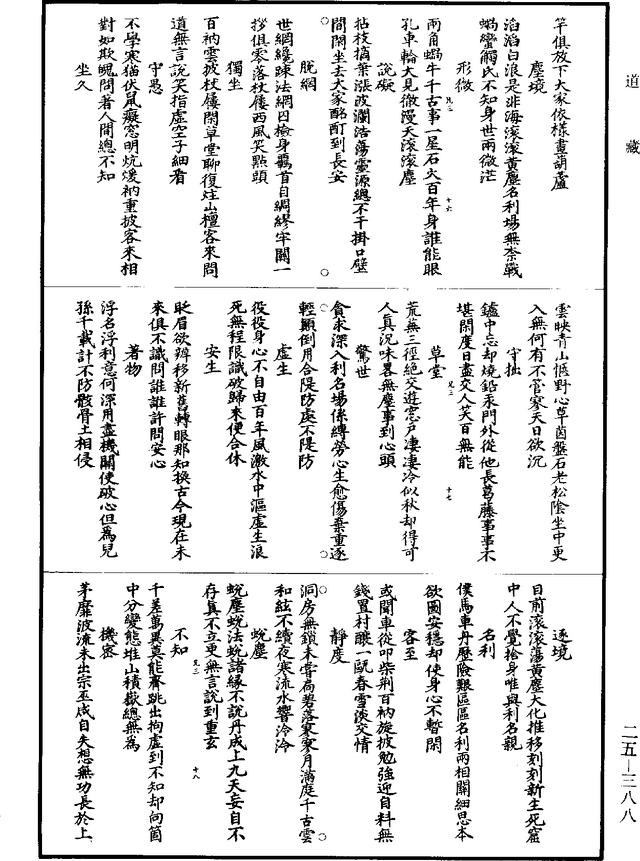 道藏
竿俱放下大家依樣畫葫蘆
塵境
滔滔白浪是非海滚滚黃塵名利場無柰戰
蝸蠻觸氏不知身世兩微茫
形微
兩角蝸牛千古事一星石火百年身誰能眼
孔車輪大見徹漫天滚滚塵
說礙
拈枝摘葉漲波瀾浩蕩靈源總不干掛口壁
間閑坐去大家酩酊到長安
脫網
世網纔踈法網囚檢身羈首自綢繆牢關一
拶俱零落杖屨西風笑點頭
獨坐
百衲雲披杖屨閑草堂聊復炷山檀客來問
道無言說笑指虛空子細看
守愚
不學寒猫伏鼠癡窓明炕煖衲重披客來相
對如欺魄問著人間總不知
坐久
雲映青山愜野心草茵盤石老松陰坐中更
入無何有不管寒天日欲沉
守拙
鑪中忘却燒鉛汞門外從他長葛藤事事不
堪閑度日盡交人笑百無能
草堂
荒蕪三徑絕交遊窓戶凄凄冷似秋却得可
人真況味畧無塵事到心頭
驚世
貪求深入利名場係縛勞心生愈傷棄重逐
輕顛倒用合隄防處不隄防
虛生
役役身心不自由百年風激水中漚虛生浪
死無程限識破歸來便合休
安生
眨眉欲辨移新舊轉眼那知換古今現在未
來俱不識問誰誰許問安心
著物
浮名浮利意何深用盡機關使破心但為兒
孫千載計不防骸骨土相侵
逐境
目前滚滚蕩黃塵大化推移刻刻新生死窟
中人不覺捨身唯與利名親
名利
僕馬車丹歷險艱區區名利兩相關細思本
欲圖安穩却使身心不暫閑
客至
或閑車從叩柴荆百衲旋披勉強迎自料無
錢置村釀一甌春雪淡交情
靜度
洞房無鎖未嘗扃碧落寥寥月滿庭千古雲
和絃不續夜寒流水響泠泠
蛻塵
蛻塵蛻法蛻諸緣不說丹成上九天妄自不
存真不立更無言說到重玄
不知
千差萬異莫能齊跳出拘虛到不知却向箇
中分變態堆山積嶽總無為
機密
茅靡波流未出宗巫咸自失想無功長於上
二五—三八八